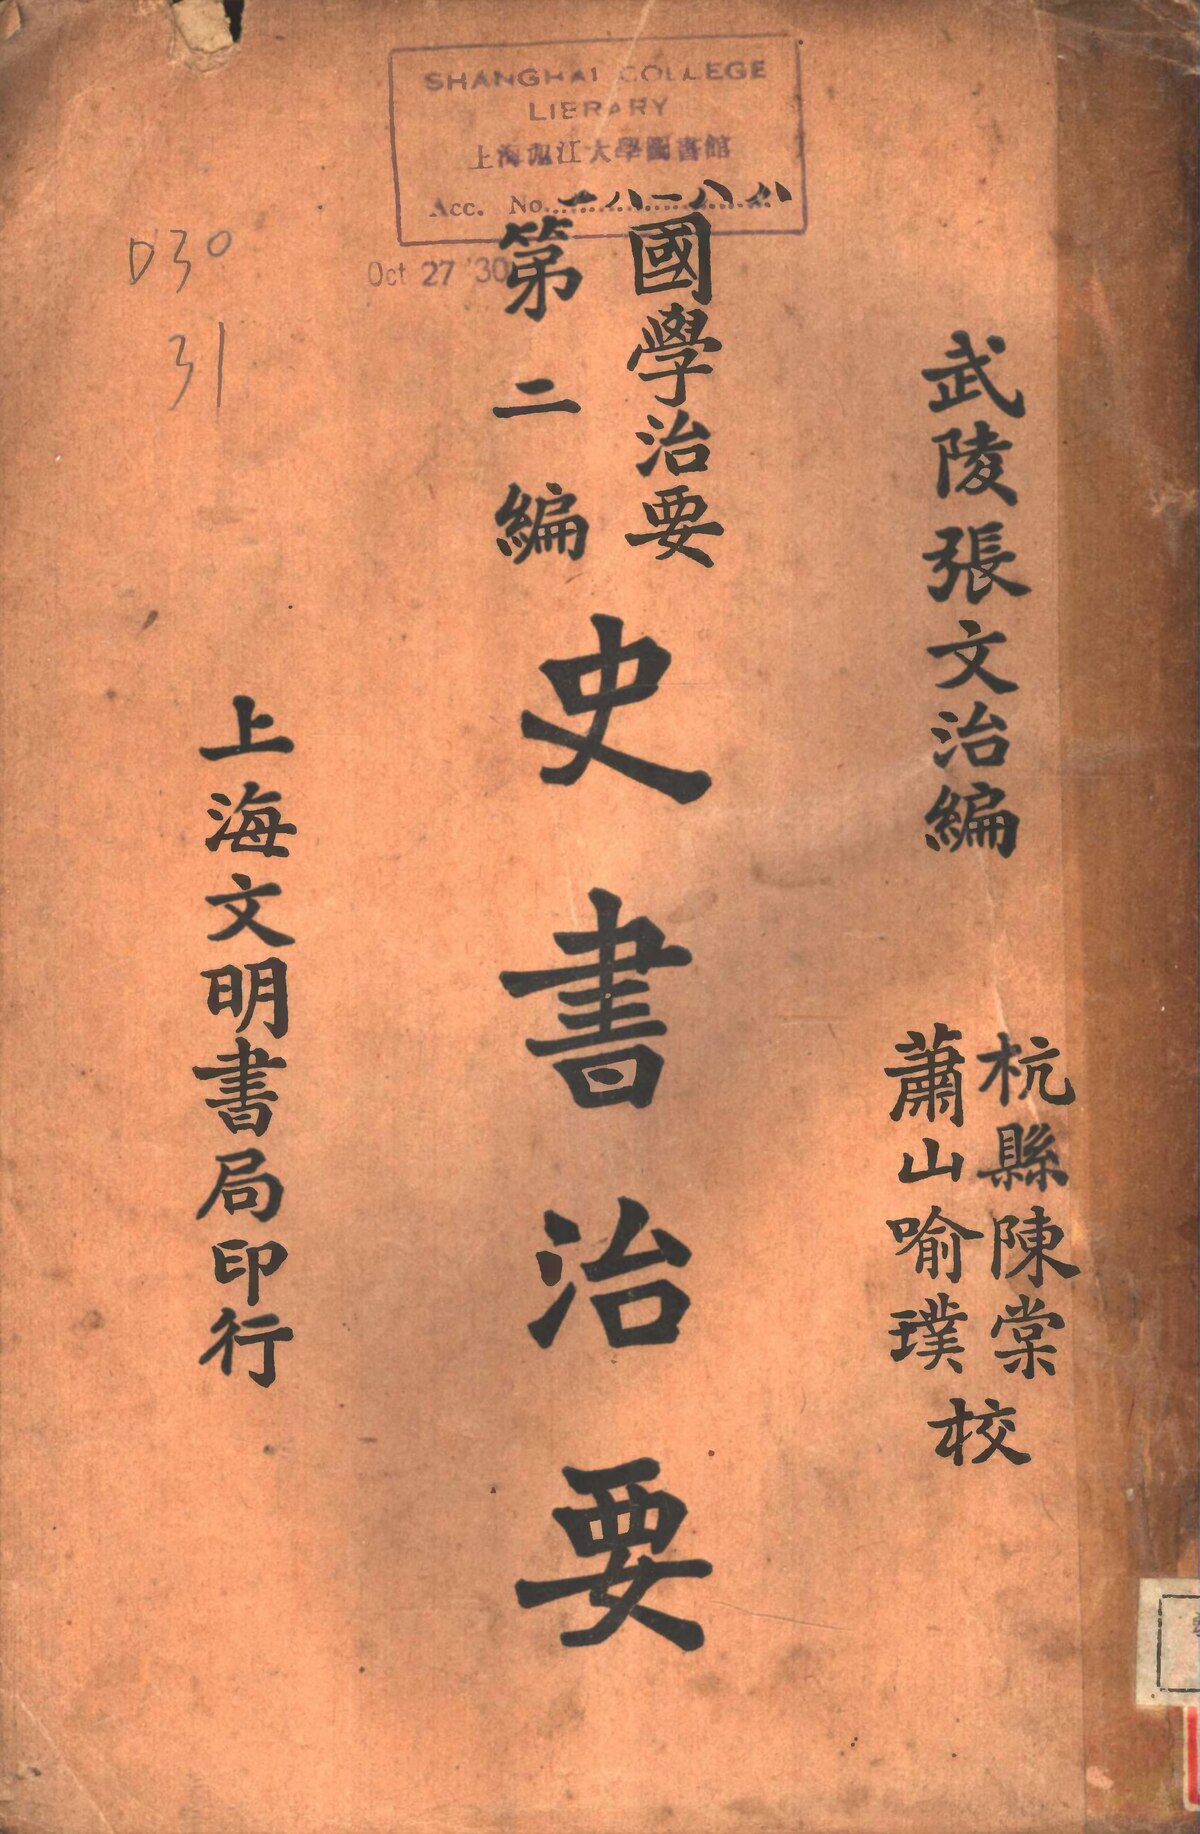 SHANGHAI COLLEGE
LIBRARY
上海滬江大學圖書館
Acc. No.
Oct 27 '30
D30
31
武陵張文治編
杭縣陳棠
蕭山喻璞
校
國學治要
第二編
史書治要
上海文明書局印行